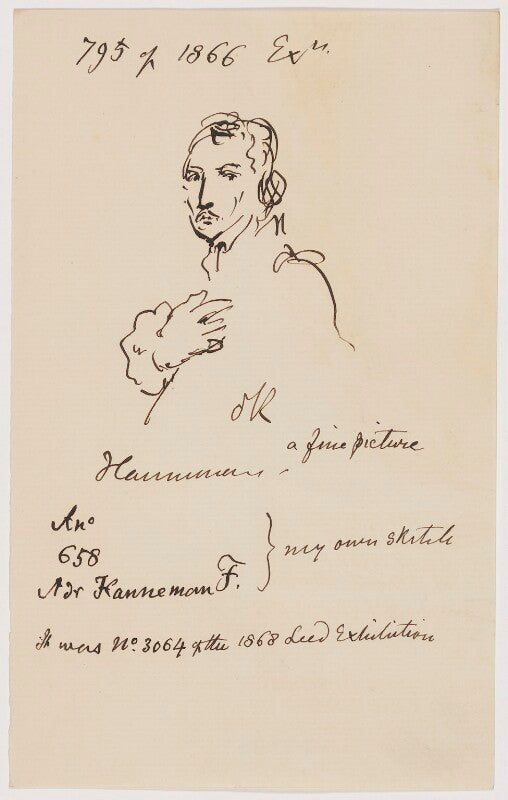 795 of 1866 Exn.
OK
a fine picture
Hannemans
Ano
658
Adr Hanneman F.
my own sketch
It was No. 3064 of the 1868 Leed Exhibition